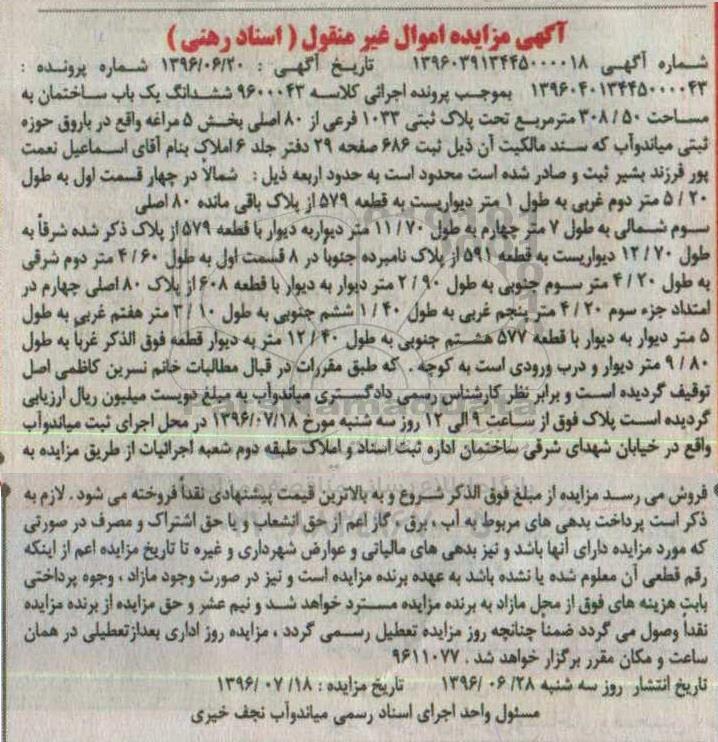 آگهی مزایده اموال غیر منقول ( اسناد رهنی )
شماره آگهی ۱۳۹۶۰۳۹۱۳۴۴۵۰۰۰۰۱۸ تاریخ آگهی : ۱۳۹۶/۰۶/۲۰ شماره پرونده :
۱۳۹۶۰۴۰۱۳۴۴۵۰۰۰۰۴۳ بموجب پرونده اجرائی کلاسه ۹۶۰۰۰۴۳ ششدانگ یک باب ساختمان به
مساحت ۵۰ / ۳۰۸ مترمربع تحت پلاک ثبتی ۱۰۳۳ فرعی از ۸۰ اصلی بخش ۵ مراغه واقع در باروق حوزه
ثبتی میاندوآب که سند مالکیت آن ذیل ثبت ۶۸۶ صفحه ۲۹ دفتر جلد ۶ املاک بنام آقای اسماعیل نعمت
پور فرزند بشیر ثبت و صادر شده است محدود است به حدود اربعه ذیل : شمالاً در چهار قسمت اول به طول
۲۰ / ۵ متر دوم غربی به طول ۱ متر دیواریست به قطعه ۵۷۹ از پلاک باقی مانده ۸۰ اصلی
سوم شمالی به طول ۷ متر چهارم به طول ۷۰ / ۱۱ متر دیواربه دیوار با قطعه ۵۷۹ از پلاک ذکر شده شرقاً به
طول ۷۰ / ۱۲ دیواریست به قطعه ۵۹۱ از پلاک نامبرده جنوباً در ۸ قسمت اول به طول ۶۰ / ۴ متر دوم شرقی
به طول ۲۰ / ۴ متر سوم جنوبی به طول ۹۰ / ۲ متر دیوار به دیوار با قطعه ۶۰۸ از پلاک ۸۰ اصلی چهارم در
امتداد جزء سوم ۲۰ / ۴ متر پنجم غربی به طول ۴۰ / ۱ ششم جنوبی به طول ۱۰ / ۳ متر هفتم غربی به طول
۵ متر دیوار به دیوار با قطعه ۵۷۷ هشتم جنوبی به طول ۴۰ / ۱۲ متر به دیوار قطعه فوق الذکر غرباً به طول
۸۰ / ۹ متر دیوار و درب ورودی است به کوچه . که طبق مقررات در قبال مطالبات خانم نسرین کاظمی اصل
توقیف گردیده است و برابر نظر کارشناس رسمی دادگستری میاندوآب به مبلغ دویست میلیون ریال ارزیابی
گردیده است پلاک فوق از ساعت ۹ الی ۱۲ روز سه شنبه مورخ ۱۳۹۶/۰۷/۱۸ در محل اجرای ثبت میاندوآب
واقع در خیابان شهدای شرقی ساختمان اداره ثبت اسناد و املاک طبقه دوم شعبه اجرائیات از طریق مزایده به
فروش می رسد مزایده از مبلغ فوق الذکر شروع و به بالاترین قیمت پیشنهادی نقداً فروخته می شود . لازم به
ذکر است پرداخت بدهی های مربوط به آب ، برق ، گاز اعم از حق انشعاب و یا حق اشتراک و مصرف در صورتی
که مورد مزایده دارای آنها باشد و نیز بدهی های مالیاتی و عوارض شهرداری و غیره تا تاریخ مزایده اعم از اینکه
رقم قطعی آن معلوم شده یا نشده باشد به عهده برنده مزایده است و نیز در صورت وجود مازاد ، وجوه پرداختی
بابت هزینه های فوق از محل مازاد به برنده مزایده مسترد خواهد شد و نیم عشر و حق مزایده از برنده مزایده
نقداً وصول می گردد ضمناً چنانچه روز مزایده تعطیل رسمی گردد ، مزایده روز اداری بعدازتعطیلی در همان
ساعت و مکان مقرر برگزار خواهد شد . ۹۶۱۱۰۷۷
تاریخ انتشار روز سه شنبه ۲۸/ ۰۶ /۱۳۹۶ تاریخ مزایده : ۱۸/ ۰۷ /۱۳۹۶
مسئول واحد اجرای اسناد رسمی میاندوآب نجف خیری